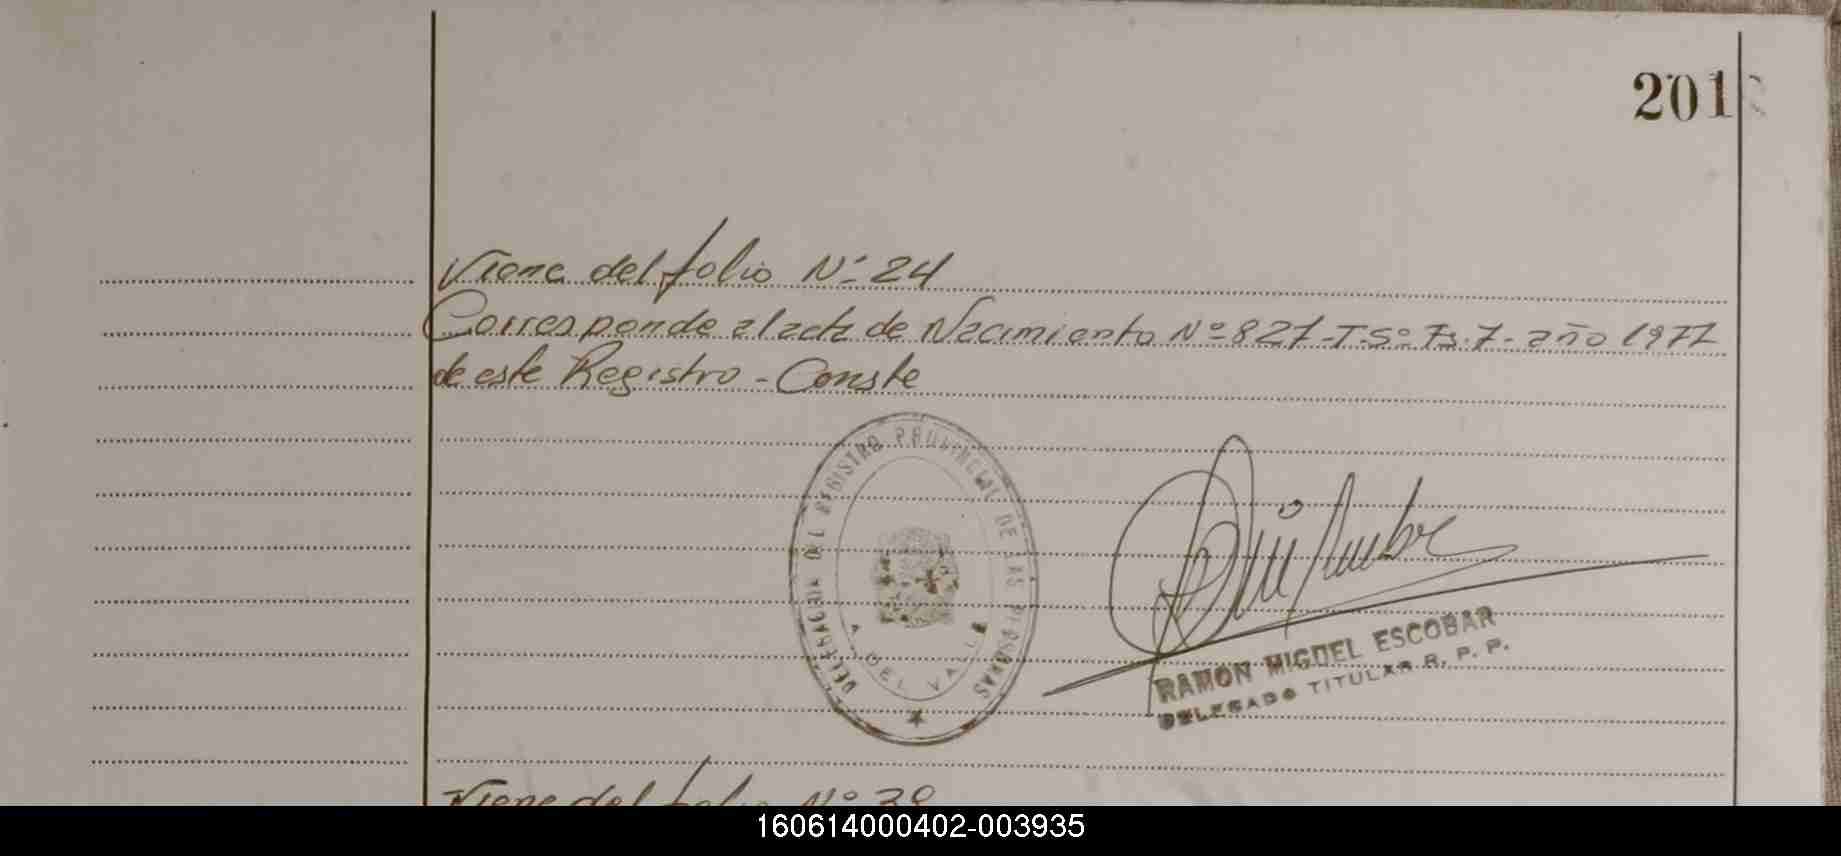 201
Viene del folio Nº 24
Corresponde al acta de Nacimiento Nº 827-T.5º Fs.7- año 1977
de este Registro - Conste
DELEGACION DEL REGISTRO PROVINCIAL DE LAS PERSONAS
A. DEL VALLE
RAMON MIGUEL ESCOBAR
DELEGADO TITULAR R. P. P.
Viene del folio Nº 38
160614000402-003935